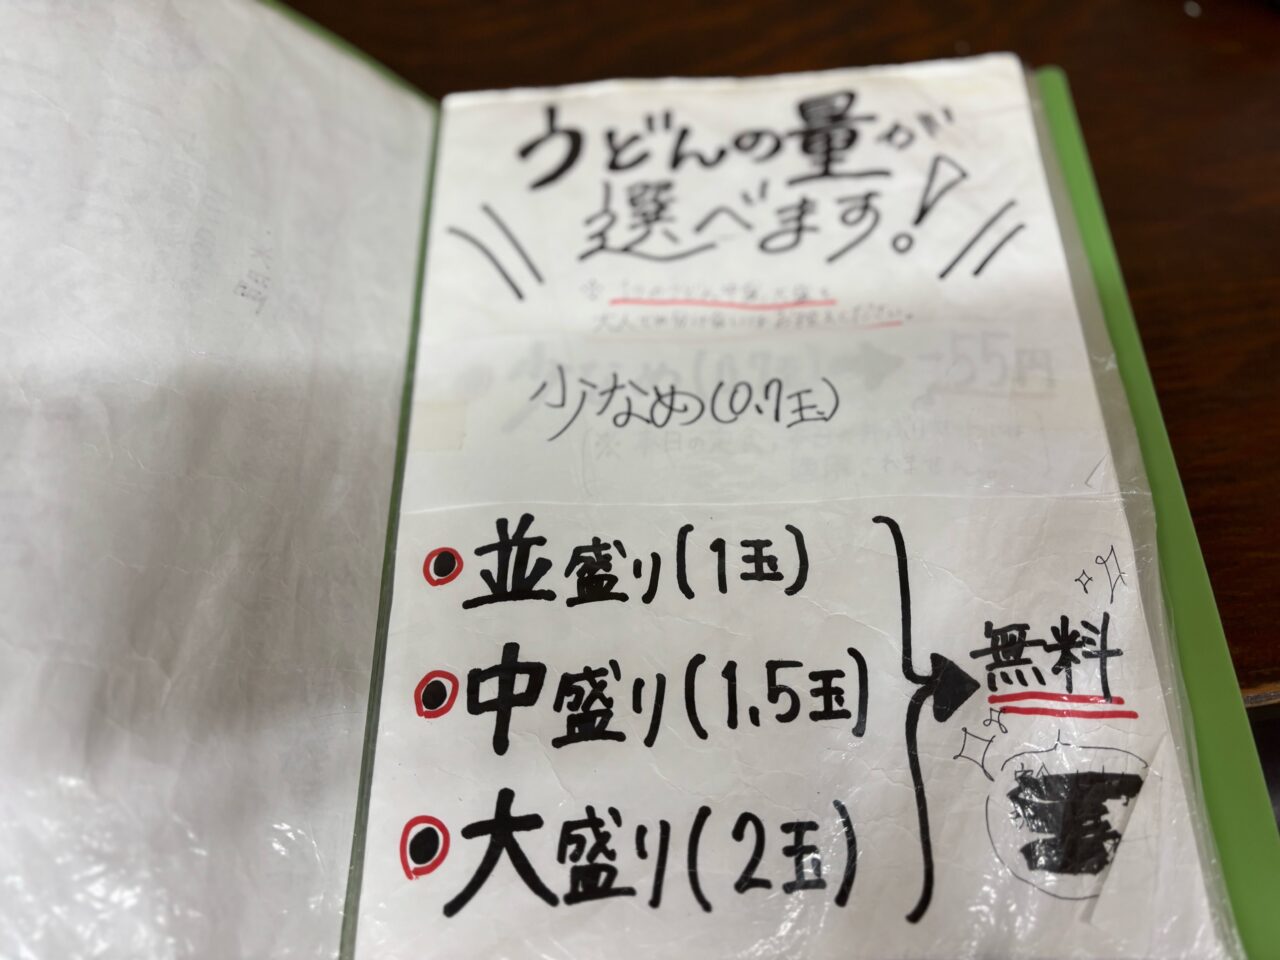 うどんの量が
選べます!
少なめ(0.7玉)
-55円
並盛り(1玉)
中盛り(1.5玉)
大盛り(2玉)
無料